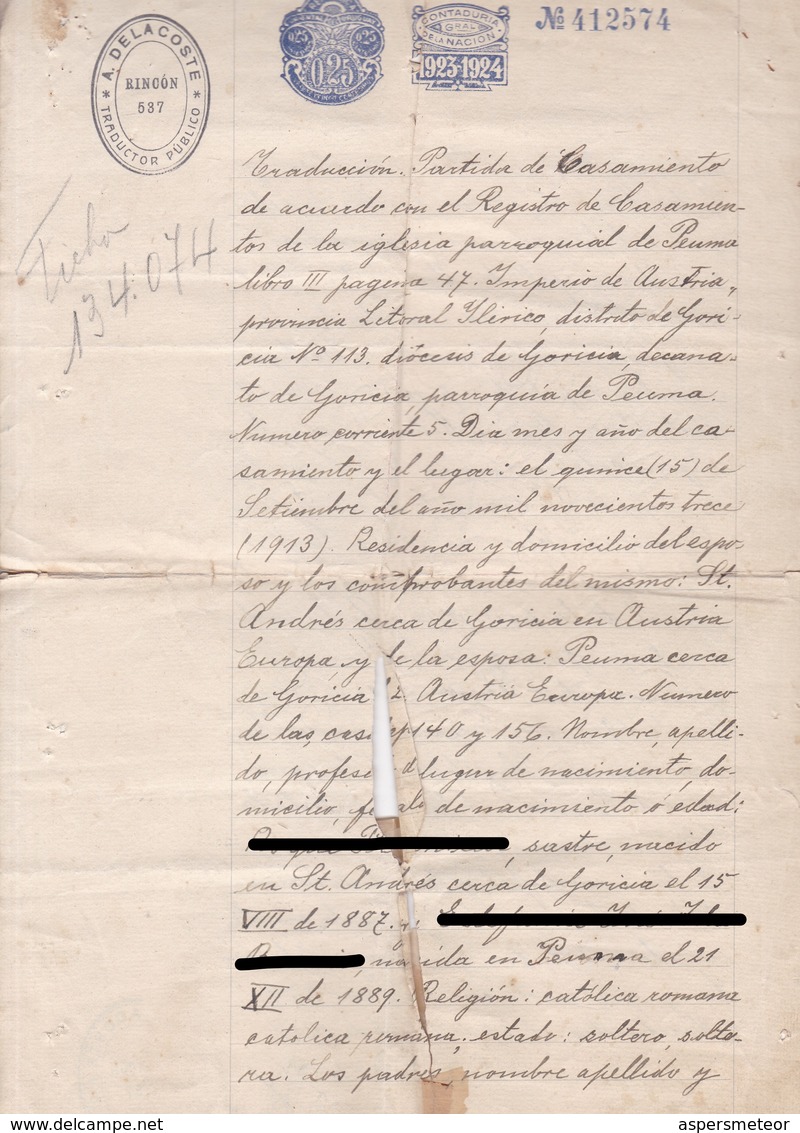 A. DELACOSTE
RINCÓN
537
TRADUCTOR PÚBLICO
025 025
0,25
CONTADURIA
GRAL
DE LA NACION
1923-1924
No 412574
Ficha
134.074
Traducción. Partida de Casamiento
de acuerdo con el Registro de Casamien-
tos de la iglesia parroquial de Peuma
libro III pagena 47. Imperio de Austria,
provincia Litoral Ilirico, distrito de Gori-
cia No 113. diócesis de Goricia, decana-
to de Goricia, parroquia de Peuma.
Numero corriente 5. Dia mes y año del ca-
samiento y el lugar: el quince (15) de
Setiembre del año mil novecientos trece
(1913). Residencia y domicilio del espo-
so y los comprobantes del mismo: St.
Andrés cerca de Goricia en Austria
Europa, y de la esposa: Peuma cerca
de Goricia Austria Europa. Numero
de las casas 140 y 156. Nombre, apelli-
do, lugar de nacimiento, do-
micilio, de nacimiento ó edad:
, sastre, nacido
en St. Andrés cerca de Goricia el 15
VIII de 1887. y
, nacida en Peuma el 21
XII de 1889. Religión: católica romana
catolica romana, estado: soltero, solte-
ra. Los padres, nombre apellido y
www.delcampe.net
aspersmeteor